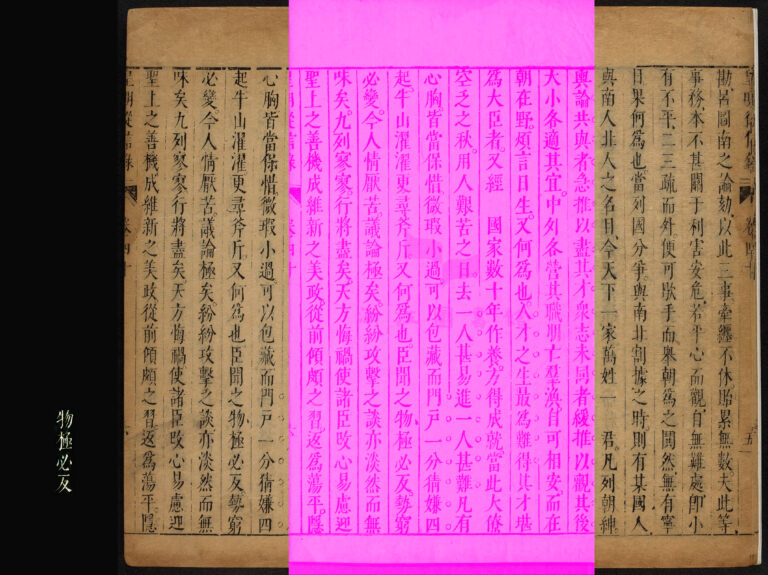 皇明從信錄 卷四十 五
勘呂圖南之論劾以此三事牽纏不休貽累無數夫此等
事務本不甚關于利害安危若平心而觀自無難處卽小
有不平二三疏而外便可歇手而舉朝爲之鬨然無有寧
日果何爲也當列國分爭與南北割據之時則有某國人
與南人北人之名目今天下一家萬姓一 君凡列朝紳
輿論共與者急推以盡其才衆志未孚者緩推以觀其後
大小各適其宜中外各營其職朋亡羣渙自可相安而在
朝在野煩言日生又何爲也人才之生最爲難得其才堪
爲大臣者又經 國家數十年作養方得成就當此大僚
空乏之秋用人艱苦之日去一人甚易進一人甚難凡有
心胸皆當保惜微瑕小過可以包藏而門戸一分猜嫌四
起牛山濯濯更尋斧斤又何爲也臣聞之物極必反勢窮
必變今人情厭苦議論極矣紛紛攻擊之談亦淡然而無
味矣九列寥寥行將盡矣天方悔禍使諸臣改心易慮迎
聖上之善機成維新之美政從前傾頗之習返爲蕩平隱
皇明從信錄 卷四十
心胸皆當保惜微瑕小過可以包藏而門戸一分猜嫌四
起牛山濯濯更尋斧斤又何爲也臣聞之物極必反勢窮
必變今人情厭苦議論極矣紛紛攻擊之談亦淡然而無
味矣九列寥寥行將盡矣天方悔禍使諸臣改心易慮迎
聖上之善機成維新之美政從前傾頗之習返爲蕩平隱
皇明從信錄 卷四十
物極必反